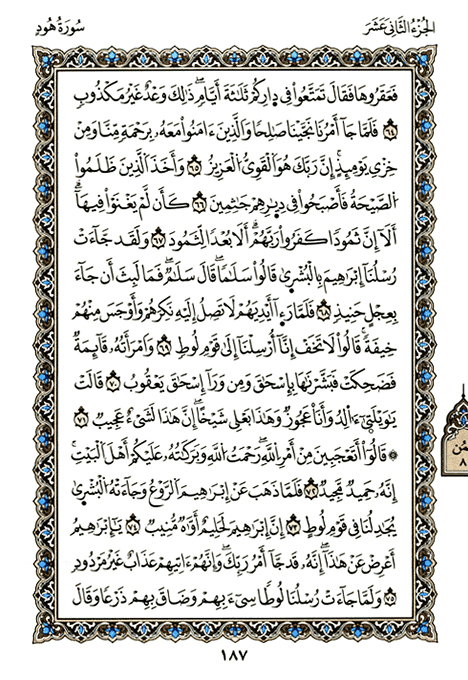 سُورَةُ هُودٍ
الجُزْءُ الثَّانِي عَشَرَ
فَعَقَرُوهَا فَقَالَ تَمَتَّعُوا۟ فِى دِارِكُمْ ثَلَٰثَةَ أَيَّامٍۖ ذَٰلِكَ وَعْدٌ غَيْرُ مَكْذُوبٍ
٦٤ فَلَمَّا جَآ أَمْرُنَا نَجَّيْنَا صَٰلِحًا وَالَّذِينَ ءَامَنُوا۟ مَعَهُۥ بِرَحْمَةٍ مِّنَّا وَمِنْ
خِزْىِ يَوْمِئِذٍۚ إِنَّ رَبَّكَ هُوَ الْقَوِىُّ الْعَزِيزُ ٦٥ وَأَخَذَ الَّذِينَ ظَلَمُوا۟
الصَّيْحَةُ فَأَصْبَحُوا۟ فِى دِيٰرِهِمْ جَٰثِمِينَ ٦٦ كَأَن لَّمْ يَغْنَوْا۟ فِيهَاۗ
أَلَآ إِنَّ ثَمُودًا كَفَرُوا۟ رَبَّهُمْۗ أَلَا بُعْدًا لِّثَمُودَ ٦٧ وَلَقَدْ جَآءَتْ
رُسُلُنَآ إِبْرَٰهِيمَ بِالْبُشْرَىٰ قَالُوا۟ سَلَٰمًاۖ قَالَ سَلَٰمٌۖ فَمَا لَبِثَ أَن جَآءَ
بِعِجْلٍ حَنِيذٍ ٦٨ فَلَمَّا رَءَآ أَيْدِيَهُمْ لَا تَصِلُ إِلَيْهِ نَكِرَهُمْ وَأَوْجَسَ مِنْهُمْ
خِيفَةًۚ قَالُوا۟ لَا تَخَفْ إِنَّآ أُرْسِلْنَآ إِلَىٰ قَوْمِ لُوطٍ ٦٩ وَامْرَأَتُهُۥ قَآئِمَةٌ
فَضَحِكَتْ فَبَشَّرْنَٰهَا بِإِسْحَٰقَ وَمِن وَرَآ إِسْحَٰقَ يَعْقُوبُ ٧٠ قَالَتْ
يَٰوَيْلَتَىٰ ءَالِدُ وَأَنَا۠ عَجُوزٌ وَهَٰذَا بَعْلِى شَيْخًاۖ إِنَّ هَٰذَا لَشَىْءٌ عَجِيبٌ ٧١
۞ قَالُوٓا۟ أَتَعْجَبِينَ مِنْ أَمْرِ اللَّهِۖ رَحْمَتُ اللَّهِ وَبَرَكَٰتُهُۥ عَلَيْكُمْ أَهْلَ الْبَيْتِۚ
إِنَّهُۥ حَمِيدٌ مَّجِيدٌ ٧٢ فَلَمَّا ذَهَبَ عَنْ إِبْرَٰهِيمَ الرَّوْعُ وَجَآءَتْهُ الْبُشْرَىٰ
يُجَٰدِلُنَا فِى قَوْمِ لُوطٍ ٧٣ إِنَّ إِبْرَٰهِيمَ لَحَلِيمٌ أَوَّٰهٌ مُّنِيبٌ ٧٤ يَٰٓإِبْرَٰهِيمُ
أَعْرِضْ عَنْ هَٰذَآۖ إِنَّهُۥ قَد جَّآ أَمْرُ رَبِّكَۖ وَإِنَّهُمْ ءَاتِيهِمْ عَذَابٌ غَيْرُ مَرْدُودٍ
٧٥ وَلَمَّا جَآءَتْ رُسُلُنَا لُوطًا سِىٓءَ بِهِمْ وَضَاقَ بِهِمْ ذَرْعًا وَقَالَ
١٨٧